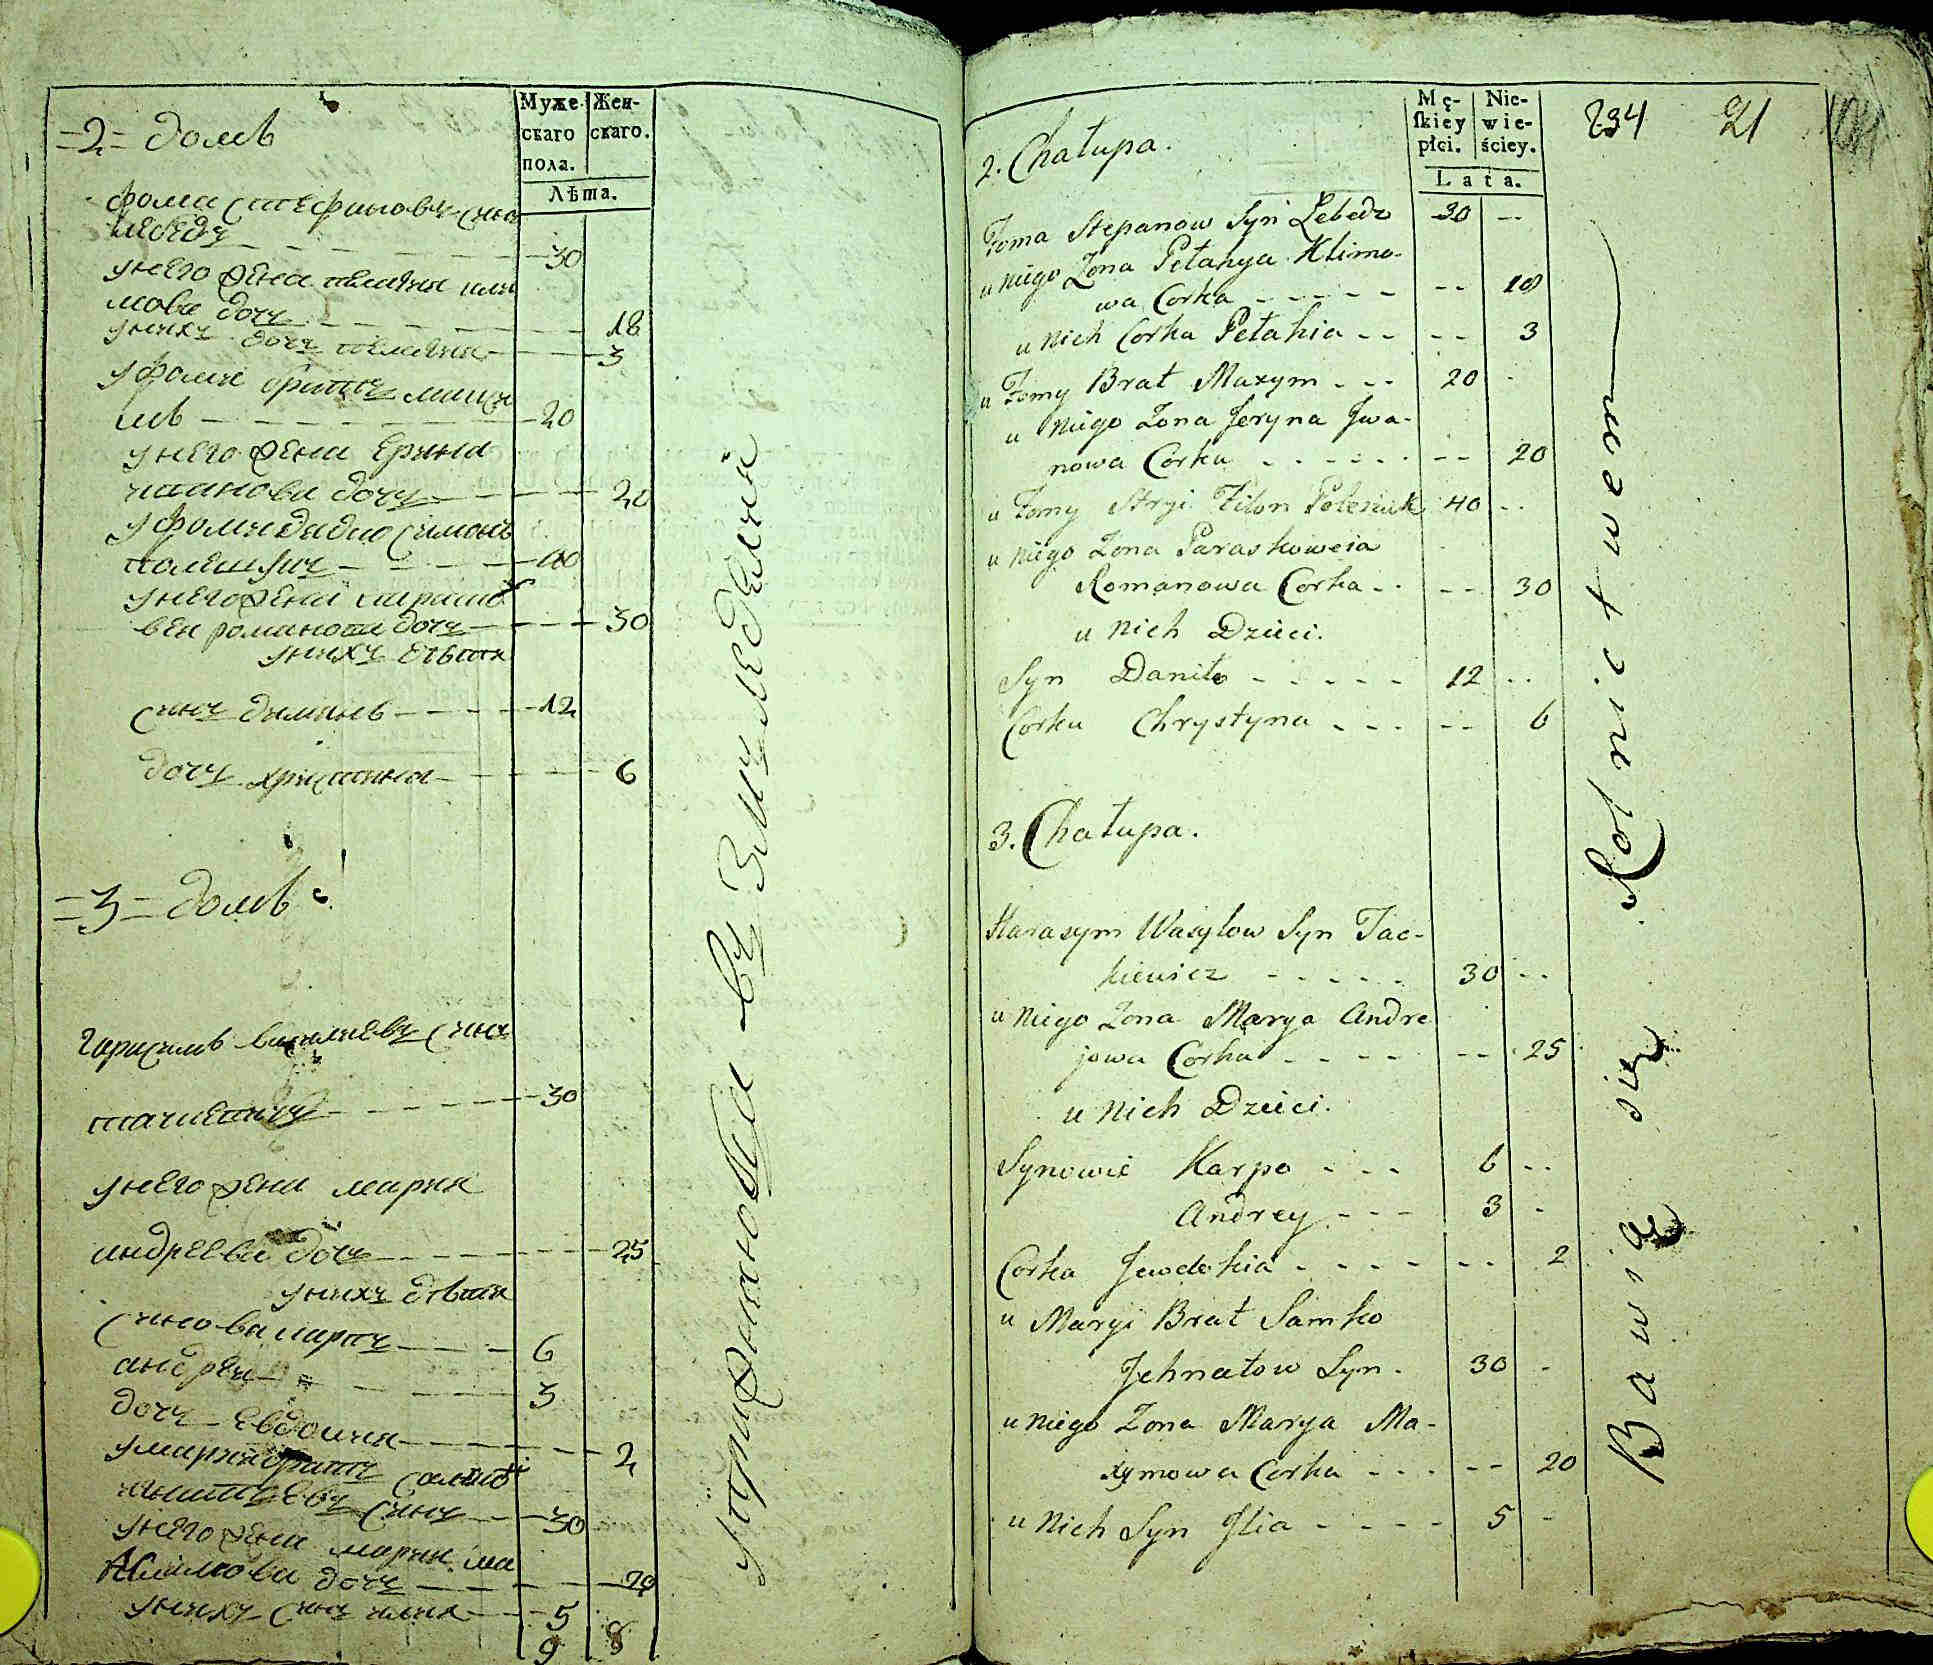 Муже-
скаго
пола.
Жен-
скаго.
Лѣта.
=2= домъ
фома стефановъ синъ
лебедъ - - - 30
унего жена пелагия кли
мова дочъ - - - 18
унихъ дочъ пелагия - - - 3
уфоми братъ макси
мъ - - - 20
унего жена ерина
иванова дочъ - - - 20
уфоми дядко
- - - 40
унего жена параско
вея романова дочъ - - - 30
унихъ дѣти
синъ данилъ - - - 12
дочъ христина - - - 6
=3= домъ
гарасимъ василиевъ синъ
- - - 30
унего жена мария
андреева дочъ - - - 25
унихъ дѣти
синова карпъ - - - 6
андреи - - - 3
дочъ евдокия - - - 2
умарии братъ самко
игнатиевъ синъ - - - 30
унего жена мария ма
ксимова дочъ - - - 20
унихъ синъ илия - - - 5
9 8
упражняюца въ Земледелии
Mę-
skiey
płci.
Nie-
wie-
ściey.
Lata.
234 21
2. Chałupa.
Foma Stepanow Syn Lebedz 30 --
u niego Zona Pełahya Klimo-
wa Corka - - - - - -- 18
u nich Corka Pełahia - - -- 3
u Fomy Brat Maxym - - - 20 -
u niego Zona Jeryna Jwa-
nowa Corka - - - - - -- 20
u Fomy Stryi Filon Poleniuk 40 --
u niego Zona Paraskoweia
Romanowa Corka - - -- 30
u nich Dzieci.
Syn Daniło - - - - - 12 --
Corka Chrystyna - - - -- 6
3. Chałupa.
Harasym Wasylow Syn Jac-
kiewicz - - - - - 30 --
u niego Zona Marya Andre
jowa Corka - - - - -- 25
u nich Dzieci.
Synowie Karpo - - - 6 --
Andrey - - - 3 -
Corka Jewdokia - - - - -- 2
u Maryi Brat Samko
Jehnatow Syn - 30 -
u niego Zona Marya Ma-
xymowa Corka - - - -- 20
u nich Syn Jlia - - - - 5 -
Bawią się Rolnictwem